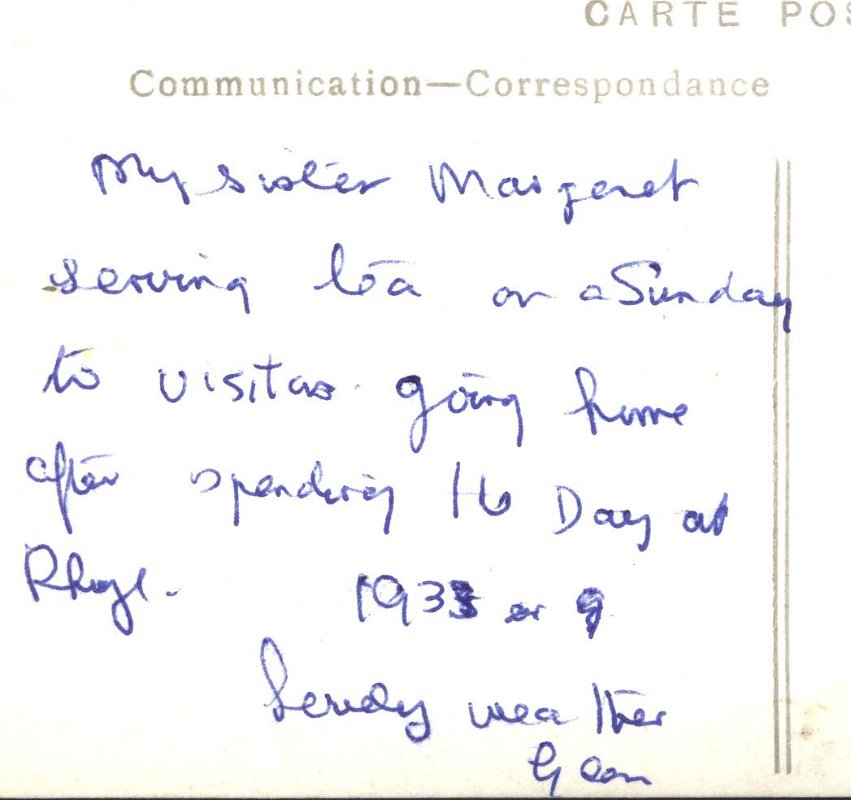 CARTE POS
Communication—Correspondance
My sister Margaret
serving tea on a Sunday
to visitors going home
after spending the Day at
Rhyl.
1938 or 9
weather
Glan